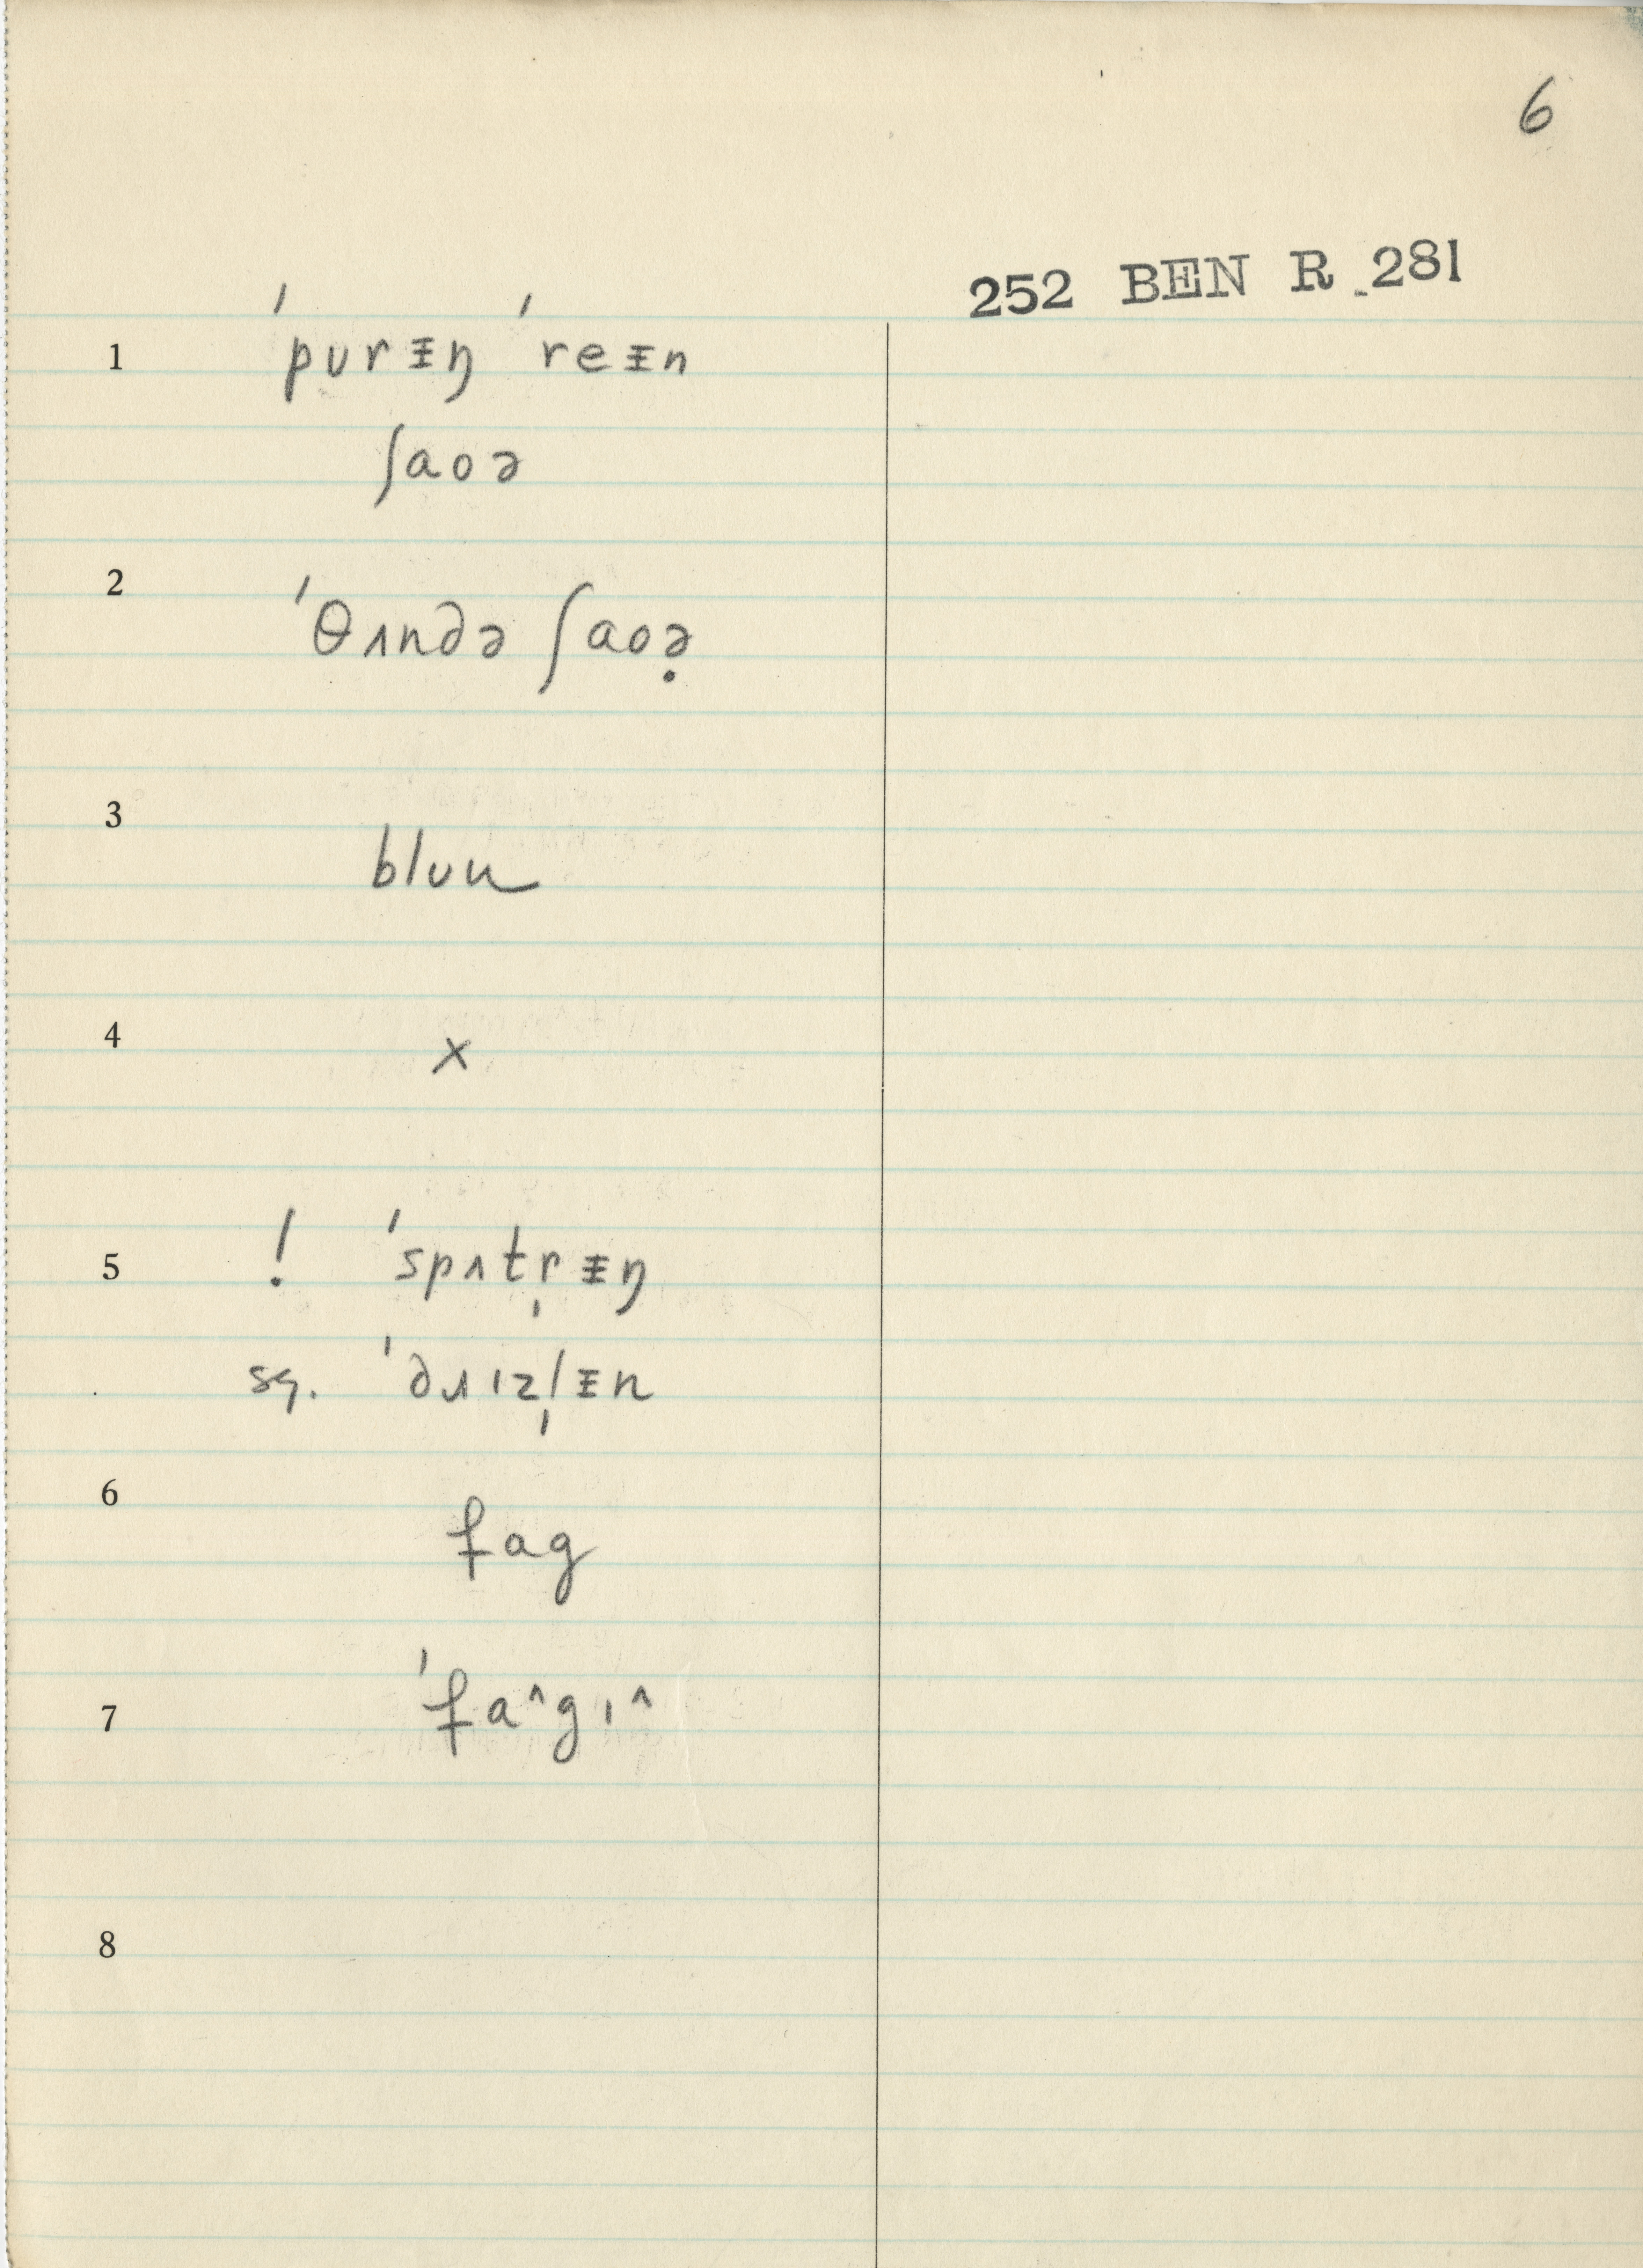 6
252 BEN R 281
1 ˈpʊrᵻŋ ˈreᵻn
ʃaoə
2 ˈθʌndə ʃaoə̣
3 blʊu
4 x
5 ! ˈspʌtr̩ᵻŋ
sq. ˈdʌɪzl̩ᵻn
6 fag
7 ˈfa^gɪ^
8